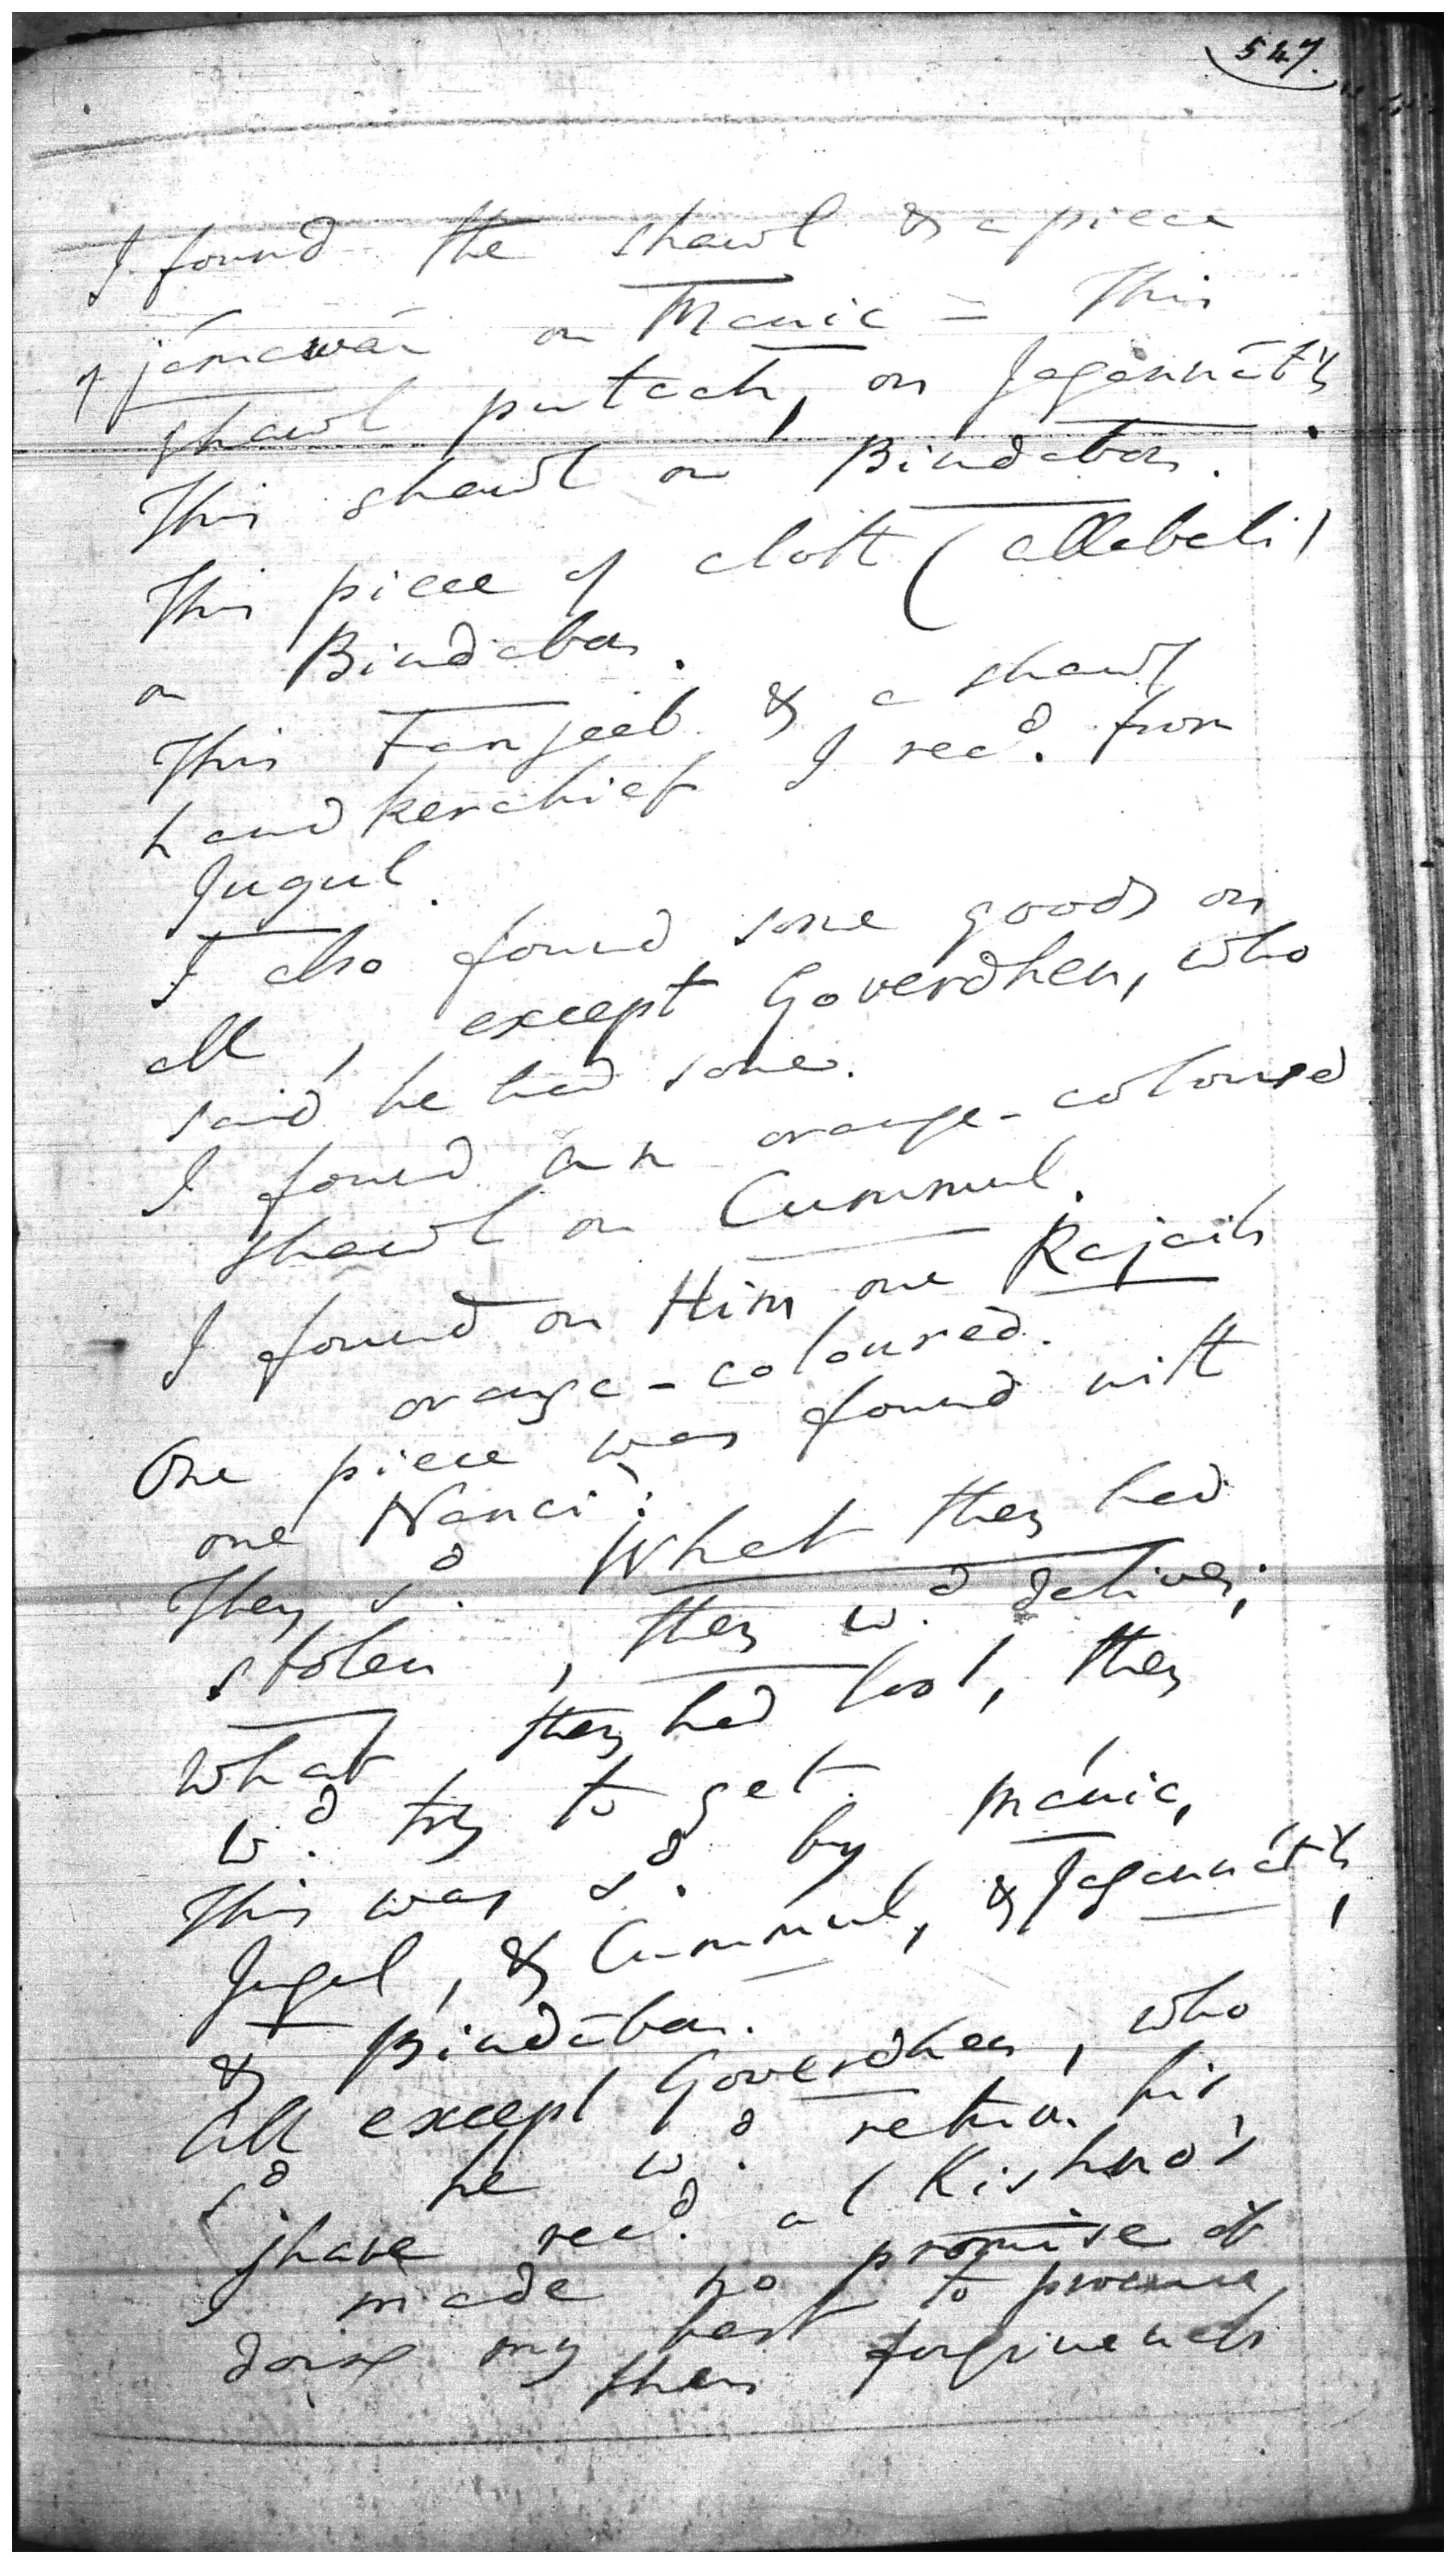 547.
I found the shawl & a piece
of jámawár on Manic = This
shawl putcah, on Jagannát'h.
This shawl on Bindaban.
This piece of cloth (allabeli)
on Bindaban.
This Tanjeeb & a shawl
handkerchief I recd. from
Jugul.
I also found some goods on
all, except Goverdhen, who
said he had some.
I found an orange-coloured
shawl on Cummul.
I found on Him one Rajaih
orange-coloured.
One piece was found with
one Nanci:
They sd. What they had
stolen, they wd. deliver;
what they had lost, they
wd. try to get.
This was sd. by Mánic,
Jugul, & Cummul, & Jagannát'h,
& Bindában.
All except Goverdhen, who
sd. he wd. return his
share recd. at Kishno's
I made no promise of
doing my best to procure
their forgiveness